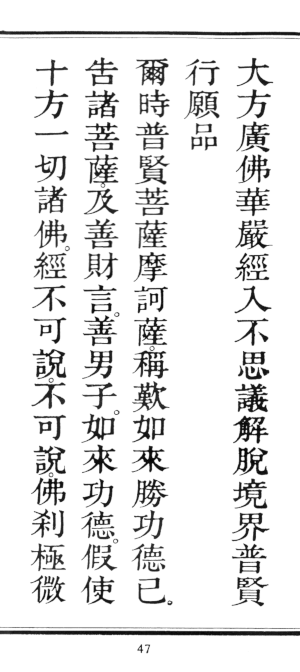 大方廣佛華嚴經入不思議解脫境界普賢
行願品
爾時普賢菩薩摩訶薩。稱歎如來勝功德已。
告諸菩薩。及善財言。善男子。如來功德。假使
十方一切諸佛。經不可說。不可說。佛刹極微
47